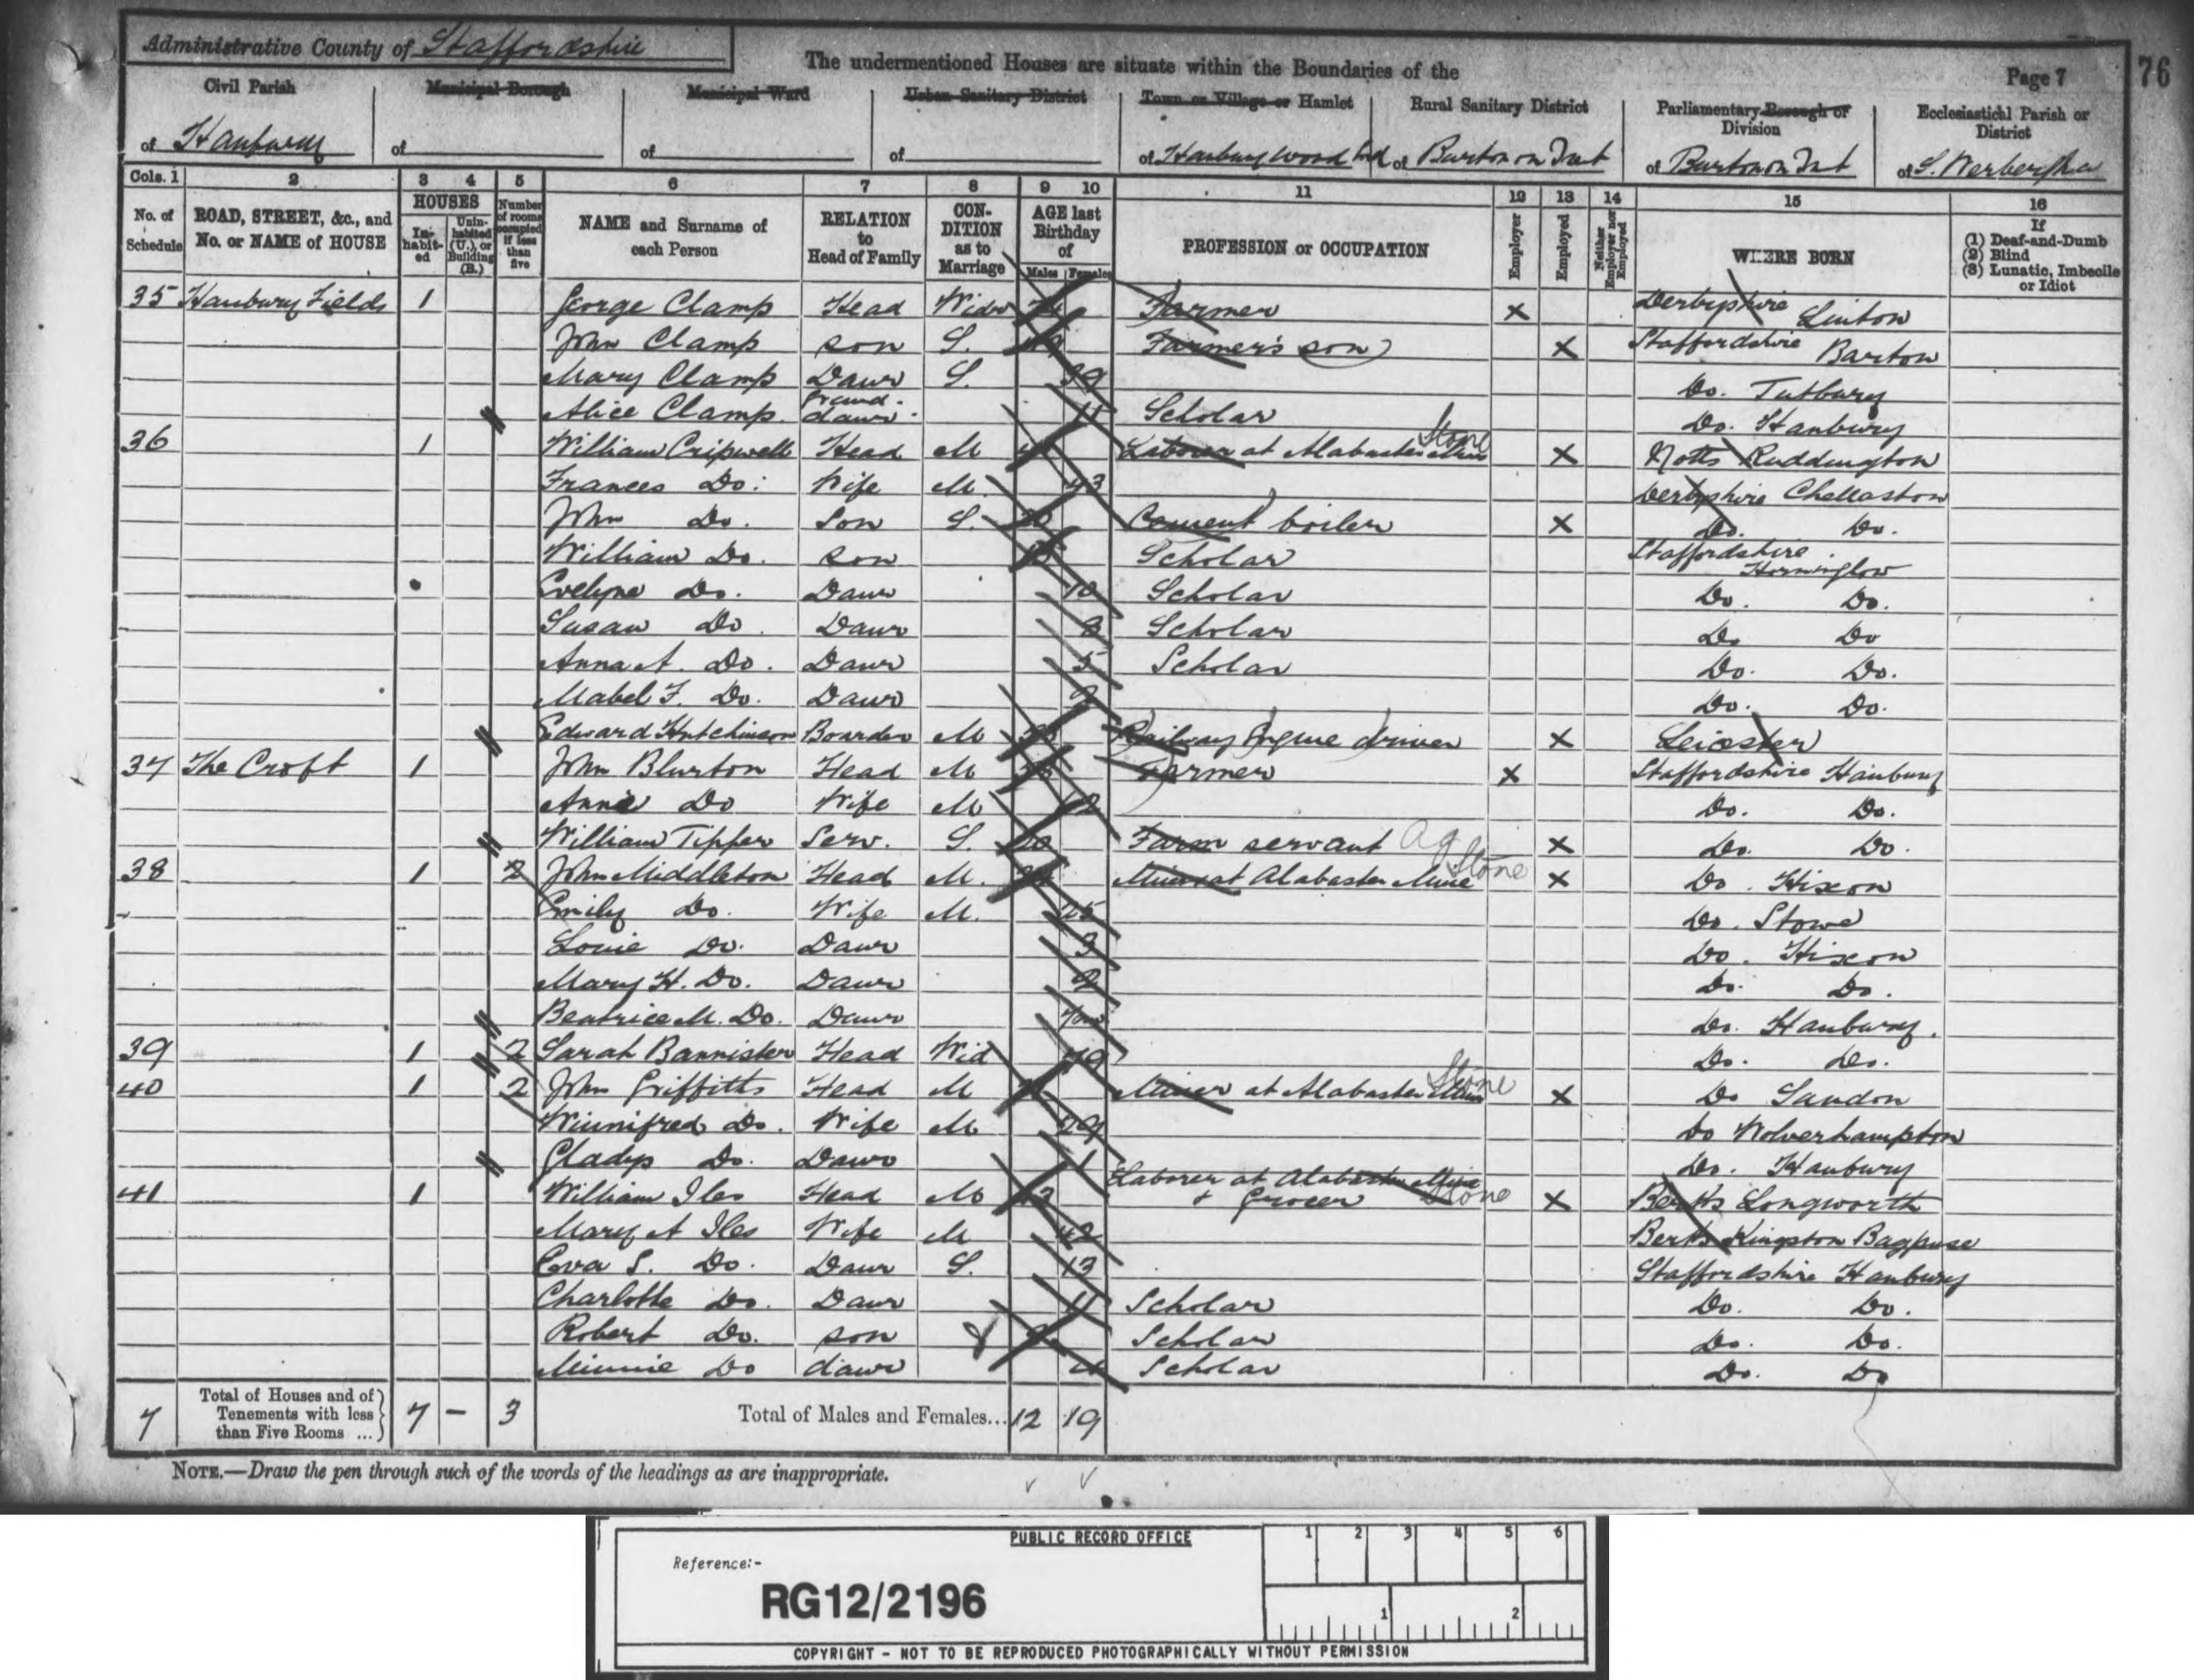 Administrative County of Staffordshire
The undermentioned Houses are situate within the Boundaries of the
Page 7
76
Civil Parish
Municipal Borough
Municipal Ward
Urban Sanitary District
Town or Village or Hamlet
Rural Sanitary District
Parliamentary Borough or Division
Ecclesiastical Parish or District
of Hanbury
of
of
of
of Hanbury Wood End
of Burton on Trent
of Burton on Trent
of S. Werbergha
Cols. 1 2 3 4 5 6 7 8 9 10 11 12 13 14 15 16
No. of Schedule
ROAD, STREET, &c., and No. or NAME of HOUSE
HOUSES
Inhabited
Uninhabited (U.), or Building (B.)
Number of rooms occupied if less than five
NAME and Surname of each Person
RELATION to Head of Family
CONDITION as to Marriage
AGE last Birthday of
Males Females
PROFESSION or OCCUPATION
Employer
Employed
Neither Employer nor Employed
WHERE BORN
If
(1) Deaf-and-Dumb
(2) Blind
(3) Lunatic, Imbecile or Idiot
35 Hanbury Fields 1 George Clamp Head Widr Farmer X Derbyshire Linton
John Clamp son S. Farmer's son X Staffordshire Barton
Mary Clamp Daur S. 39 Do. Tutbury
Alice Clamp Grand-daur 11 Scholar Do. Hanbury
36 1 William Cripwell Head M Laborer at Alabaster Mine Stone X Notts Ruddington
Frances Do. Wife M. 43 Derbyshire Chellaston
John Do. Son S. Cement boiler X Do. Do.
William Do. son Scholar Staffordshire Horninglow
Evelyne Do. Daur 10 Scholar Do. Do.
Susan Do. Daur 8 Scholar Do Do
Anna A. Do. Daur 5 Scholar Do. Do.
Mabel F. Do. Daur 2 Do. Do.
Edward Hutchinson Boarder M Railway Engine driver X Leicester
37 The Croft 1 John Blurton Head M Farmer X Staffordshire Hanbury
Annie Do Wife M Do. Do.
William Tipper Serv. S. Farm servant Ag X Do. Do.
38 1 2 John Middleton Head M. Miner at Alabaster Mine Stone X Do. Hixon
Emily Do. Wife M. 25 Do. Stowe
Louie Do. Daur 3 Do. Hixon
Mary H. Do. Daur 2 Do. Do.
Beatrice M. Do. Daur Do. Hanbury.
39 1 2 Sarah Bannister Head Wid 79 Do. Do.
40 1 2 John Griffiths Head M Miner at Alabaster Mine Stone X Do Sandon
Winnifred Do. Wife M 29 Do Wolverhampton
Gladys Do. Daur 1 Do. Hanbury
41 1 William Iles Head M Laborer at Alabaster Mine & Grocer Stone X Berks Longworth
Mary A Iles Wife M 42 Berks Kingston Bagpuse
Eva S. Do. Daur S. 13 Staffordshire Hanbury
Charlotte Do. Daur 11 Scholar Do. Do.
Robert Do. son Scholar Do. Do.
Minnie Do daur 4 Scholar Do. Do
7 Total of Houses and of Tenements with less than Five Rooms ... 7 – 3 Total of Males and Females... 12 19
NOTE.—Draw the pen through such of the words of the headings as are inappropriate.
PUBLIC RECORD OFFICE
1 2 3 4 5 6
Reference:-
RG12/2196
1 2
COPYRIGHT - NOT TO BE REPRODUCED PHOTOGRAPHICALLY WITHOUT PERMISSION